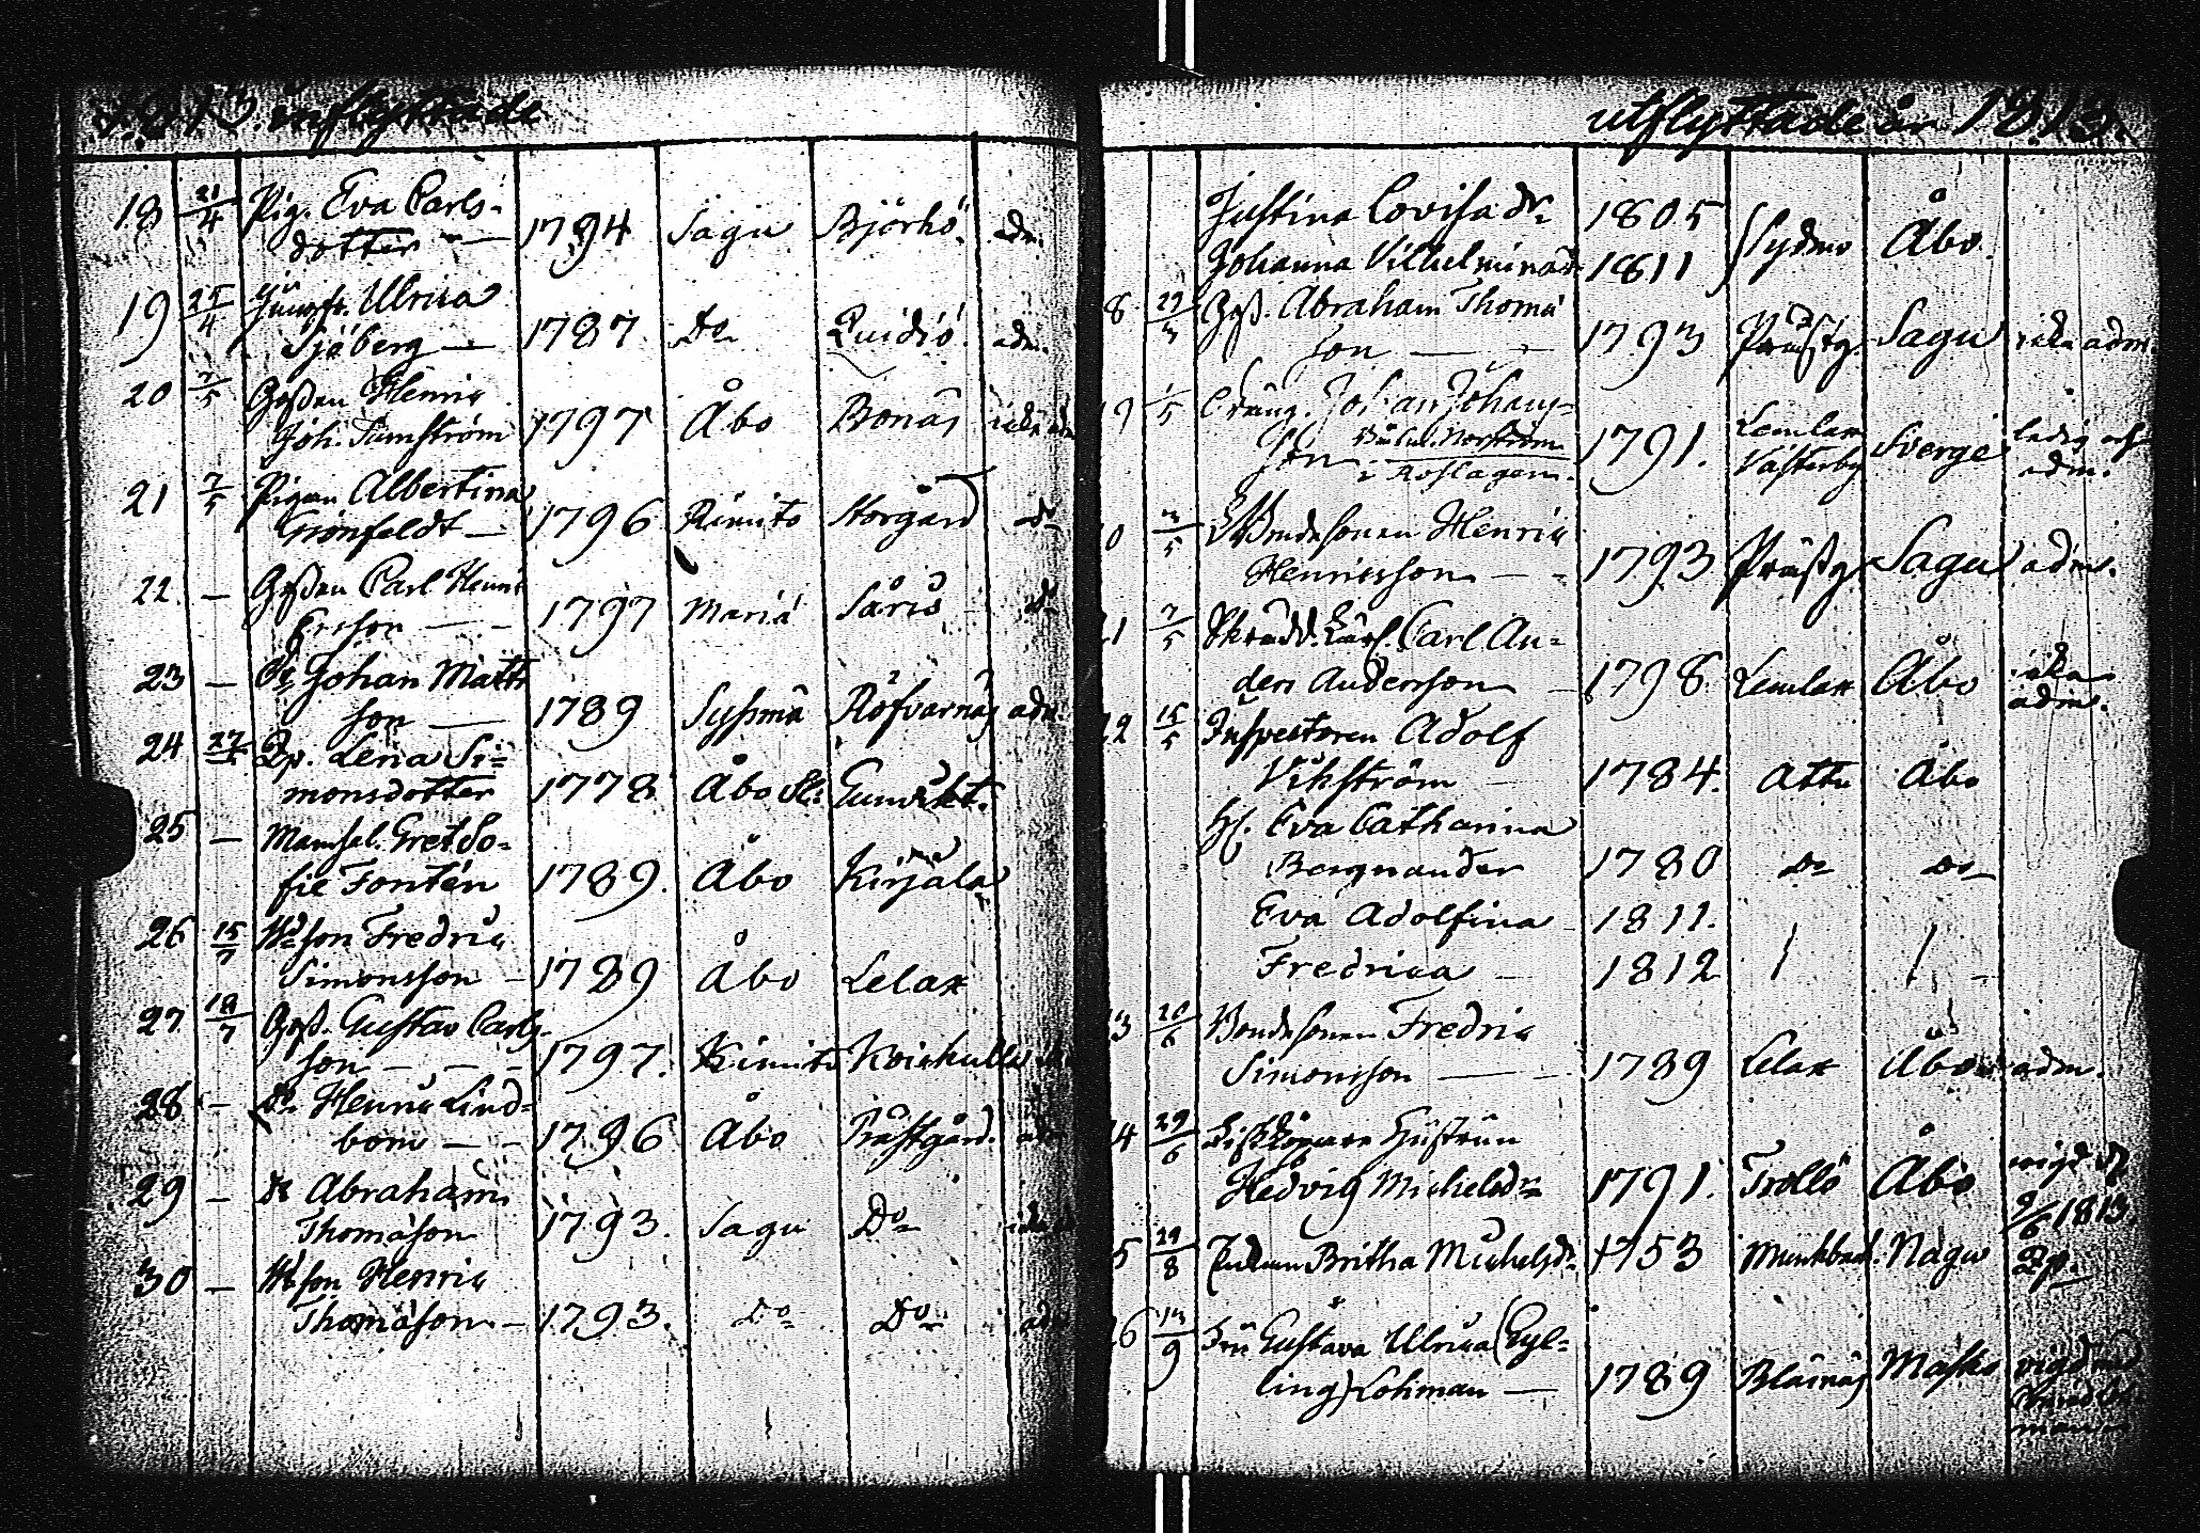 1813 inflyttade
18 21/4 Pig. Eva Carls-
dotter — 1794 Sagu Björkö. adm.
19 25/4 Jungfr. Ulrica
Sjöberg — 1787 Do
20 7/5 Goßen Henric
Joh. Tamström 1797 Åbo Bonäs icke adm
21 7/5 Pigan Albertina
Grönfeldt — 1796 Kimito Storgård do
22 — Goßen Carl Henric
Ericson — 1797 Mariæ Såris do
23 — Do Johan Matts
son — 1789 Syßmä Röfvarnäs adm.
24 27/5 Bp. Lena Si=
monsdotter 1778 Åbo Sl: Gunvikt.
25 — Mamsel. Gret So-
fie Fontén 1789. Åbo Kirjala
26 15/7 Bdeson Fredric
Simonsson — 1789 Åbo Lelax
27 18/7 Goß. Gustav Carls-
son — 1797. Kimito Koikulla
28 — Do Henric Lind-
bom — 1796 Åbo Prästgård. adm
29 — Do Abraham
Thomason 1793. Sagu Do icke
30 — Bdeson Henric
Thomäson — 1793. Do Do adm
utflyttade år 1813.
Justina Lovisa dr 1805
Johanna Vilhelmina d. 1811 Sydmo Åbo.
8 29/3 Goß. Abraham Thomä
son — 1793 Prästg. Sagu icke adm.
19 1/5 Dräng. Johan Johans=
son Norrström 1791. Lemlax Västerby Sverge ledig och
i Roslagen. adm.
20 3/5 Bondesonen Henric
Henricsson — 1793 Prästg. Sagu adm.
21 7/5 Skrädd. Lärl. Carl An=
ders Andersson — 1798 Lemlax Åbo icke
adm.
22 15/5 Inspectoren Adolf
Vikström — 1784. Attu Åbo
H. Eva Catharina
Bergnander 1780 Do Do
Eva Adolfina — 1811.
Fredrica — 1812
13 20/6 Bondesonen Fredric
Simonsson — 1789 Lelax Åbo adm.
14 29/6 Hustrun
Hedvig Michelsdr 1791. Trollö Åbo vigd d.
9/6 1813.
15 29/8 Enkan Britha Michelsdr 1753 Munkback. Nagu Bp.
26 13/9 Fru Gustava Ulrica (Gyl=
ling) Lohman — 1789 Bläsnäs Masko vigd med